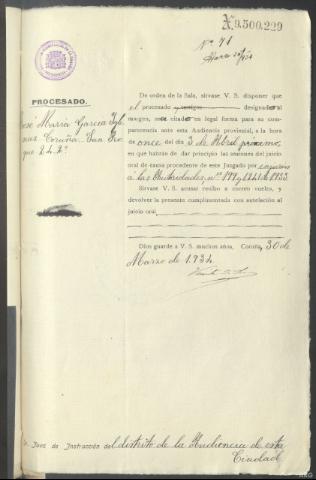 N.9.500.229
Nº 71
PROCESADO.
José María García Igle
Coruña, San Ro
que 2
De orden de la Sala, sírvase V. S. disponer que
el procesado designado al
margen, sea citado en legal forma para su com-
parecencia ante esta Audiencia provincial, a la hora
de once del día 3 de Abril próximo
en que habrán de dar principio las sesiones del juicio
oral de causa procedente de ese Juzgado por
a las Autoridades, nº 199 y 1241 de 1933.
Sírvase V. S. acusar recibo a correo vuelto, y
devolver la presente cumplimentada con antelación al
juicio oral
Dios guarde a V. S. muchos años, Coruña, 30 de
Marzo de 1.934
Juez de Instrucción del distrito de la Audiencia de esta
Ciudad